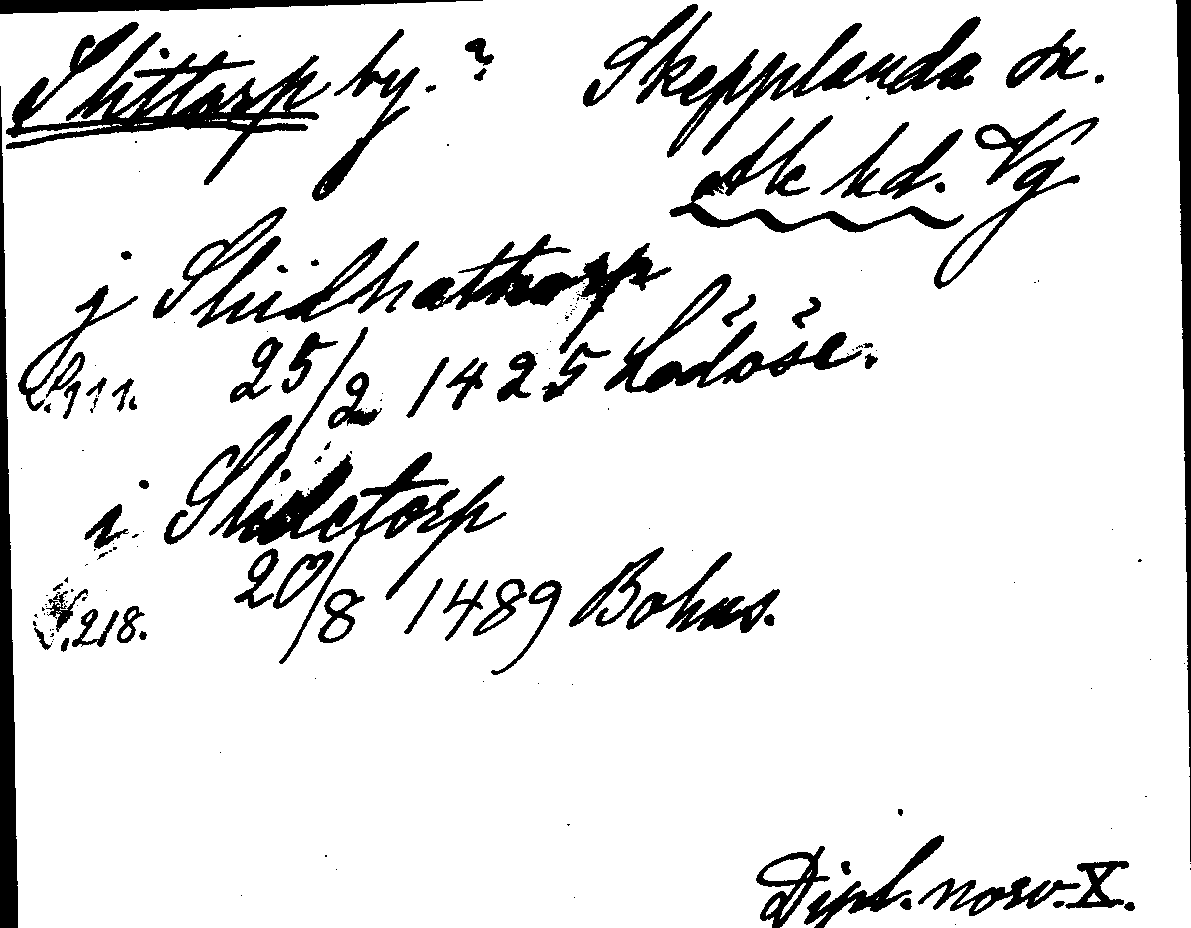 Slittorp by.? Skepplanda sn.
Ale hd. Vg
j Sliidhathorp
S.111. 25/2 1425 Lödöse.
i Slidetorp
S.218. 20/8 1489 Bohus.
Dipl. norv. X.